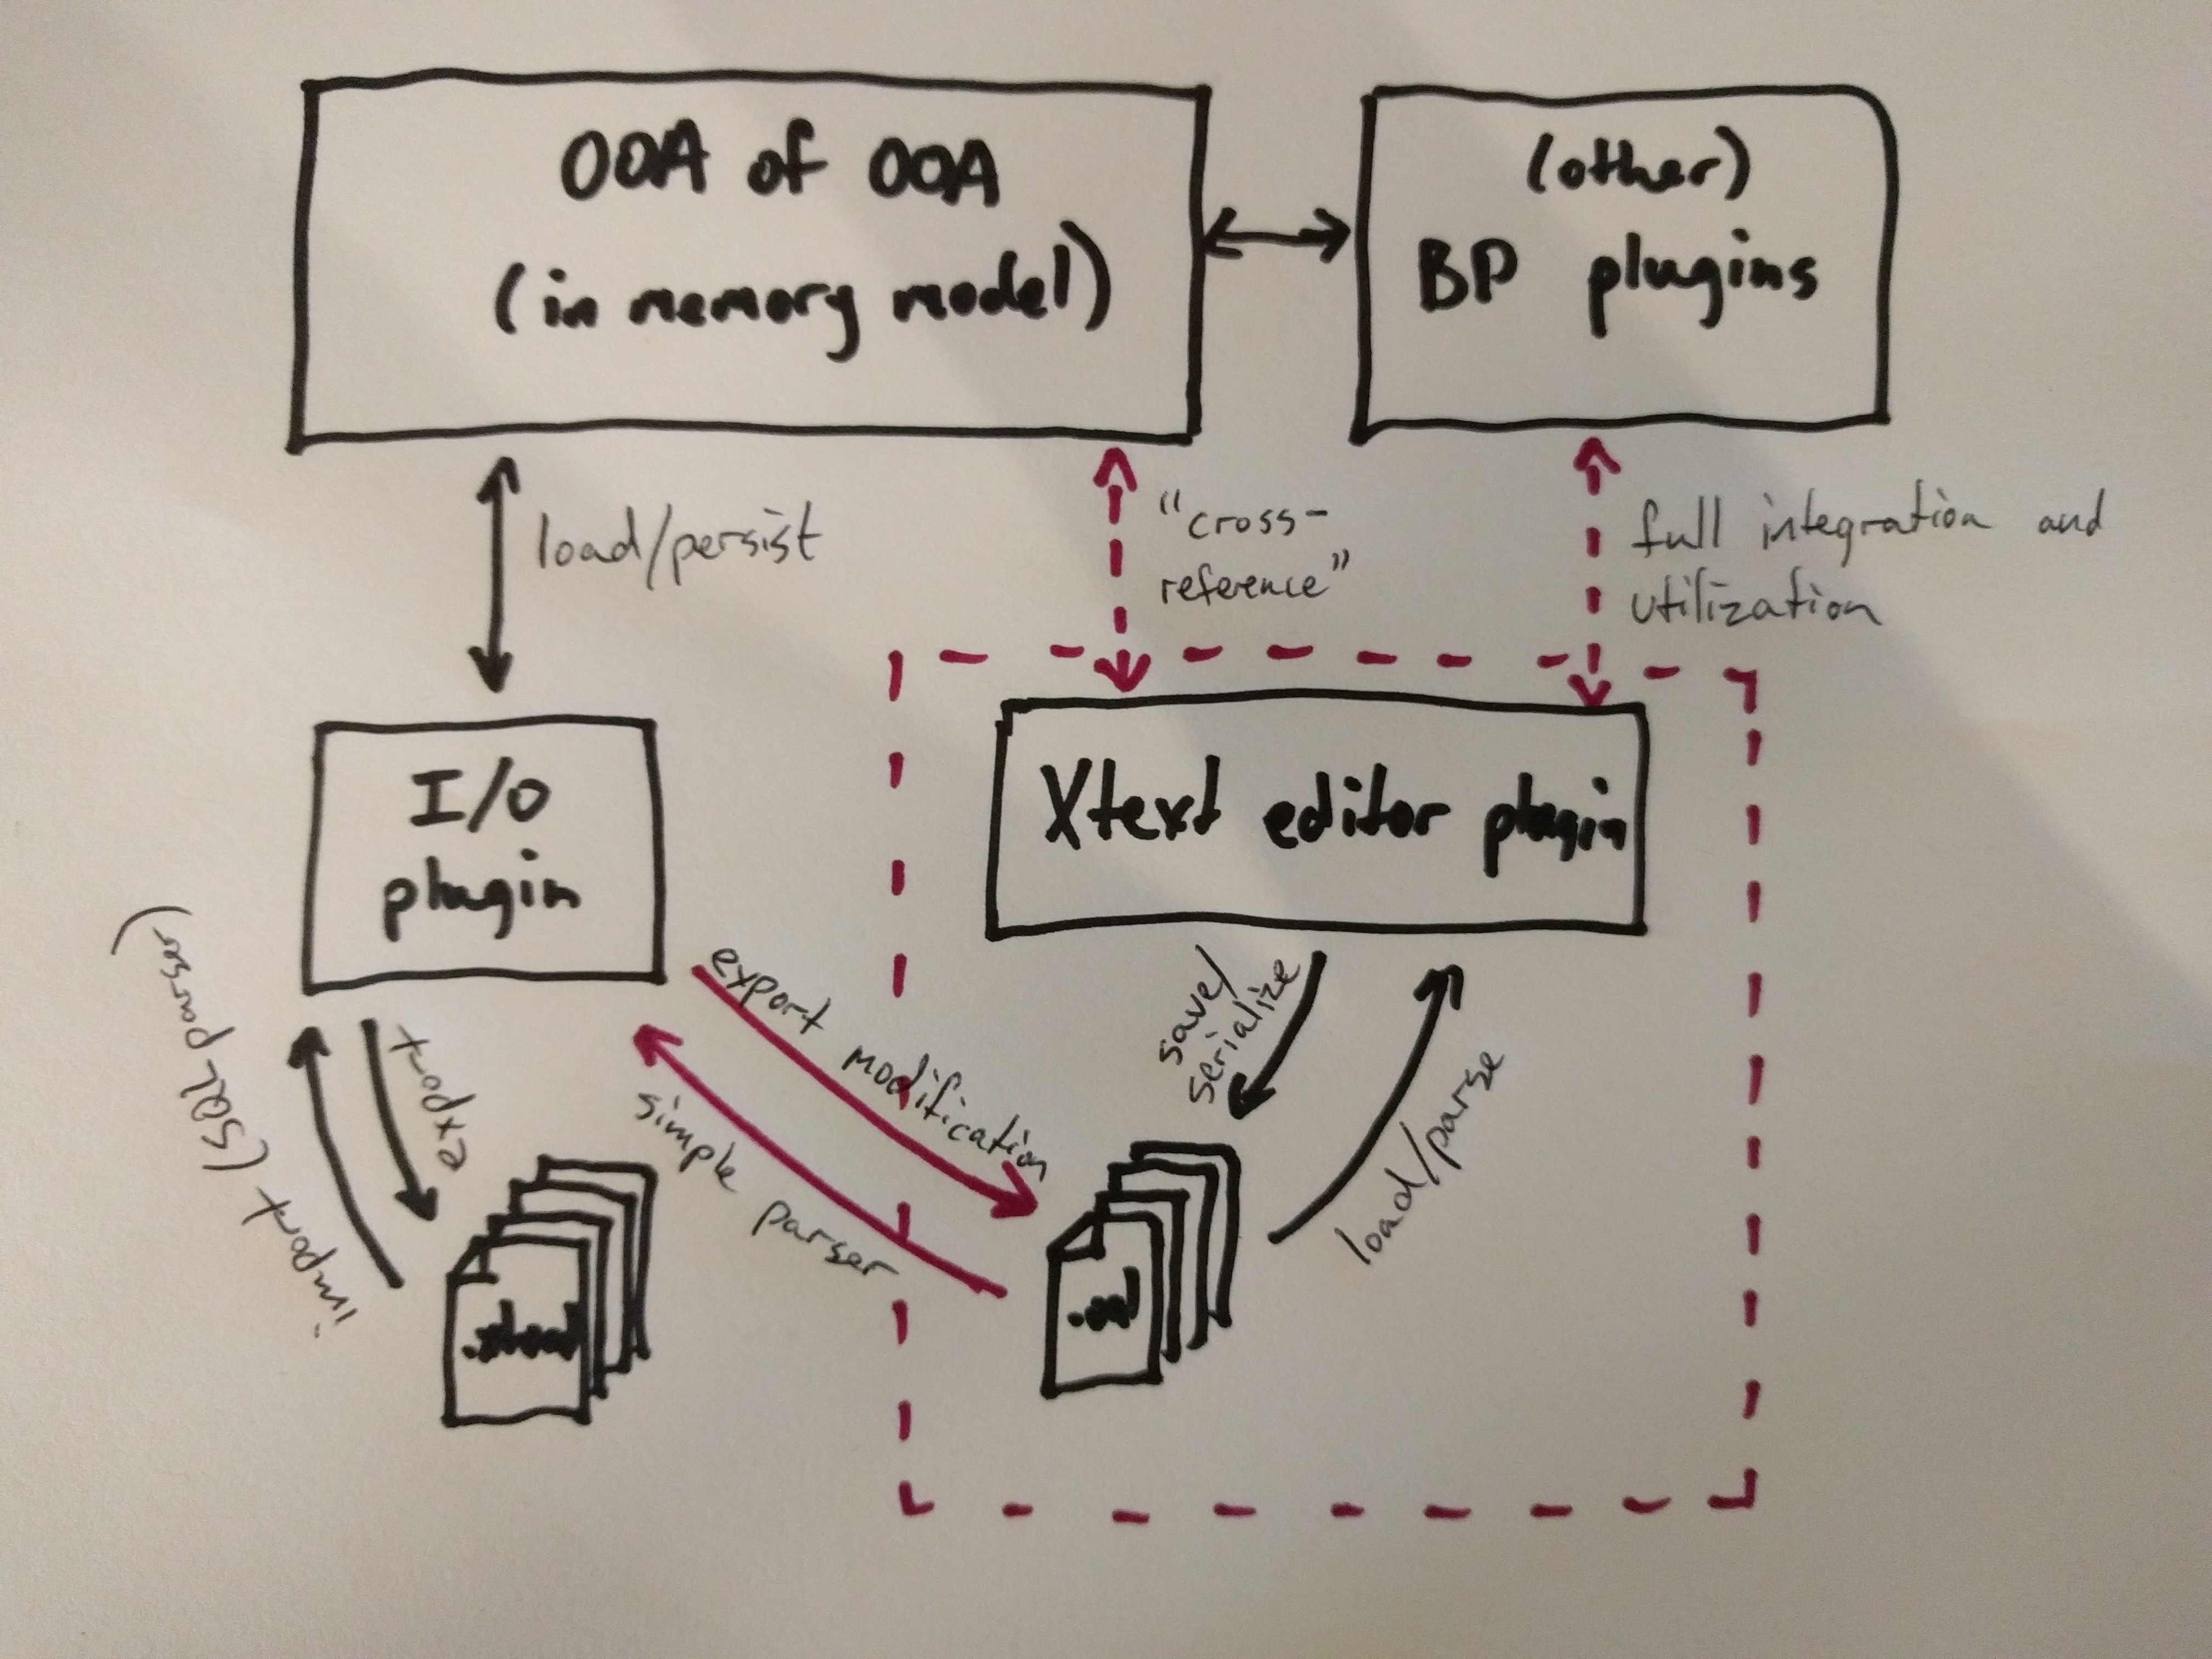 OOA of OOA
(in memory model)
(other)
BP plugins
load/persist
"cross-
reference"
full integration and
utilization
I/O
plugin
Xtext editor plugin
import (SQL parser)
export
export modification
simple parser
save/
serialize
load/parse